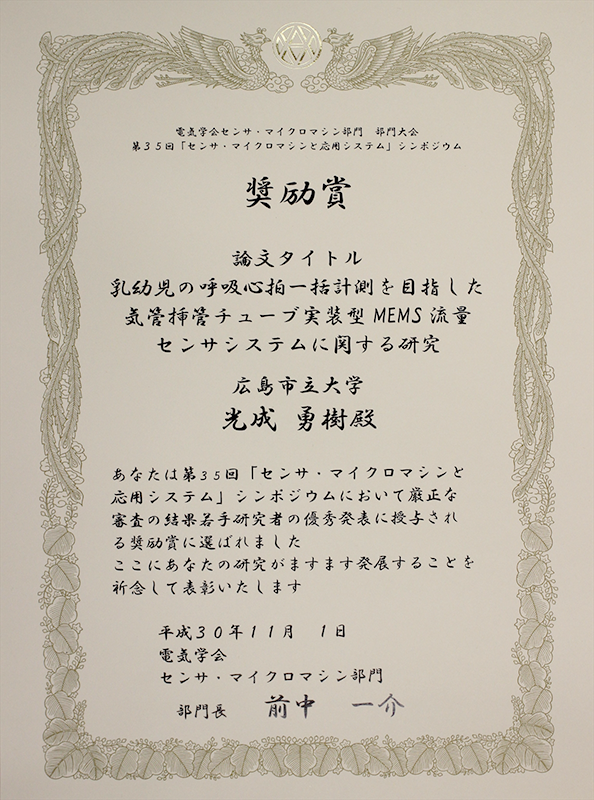 電気学会センサ・マイクロマシン部門 部門大会
第35回「センサ・マイクロマシンと応用システム」シンポジウム
奨励賞
論文タイトル
乳幼児の呼吸心拍一括計測を目指した
気管挿管チューブ実装型MEMS流量
センサシステムに関する研究
広島市立大学
光成 勇樹殿
あなたは第35回「センサ・マイクロマシンと
応用システム」シンポジウムにおいて厳正な
審査の結果若手研究者の優秀発表に授与され
る奨励賞に選ばれました
ここにあなたの研究がますます発展することを
祈念して表彰いたします
平成30年11月 1日
電気学会
センサ・マイクロマシン部門
部門長 前中 一介